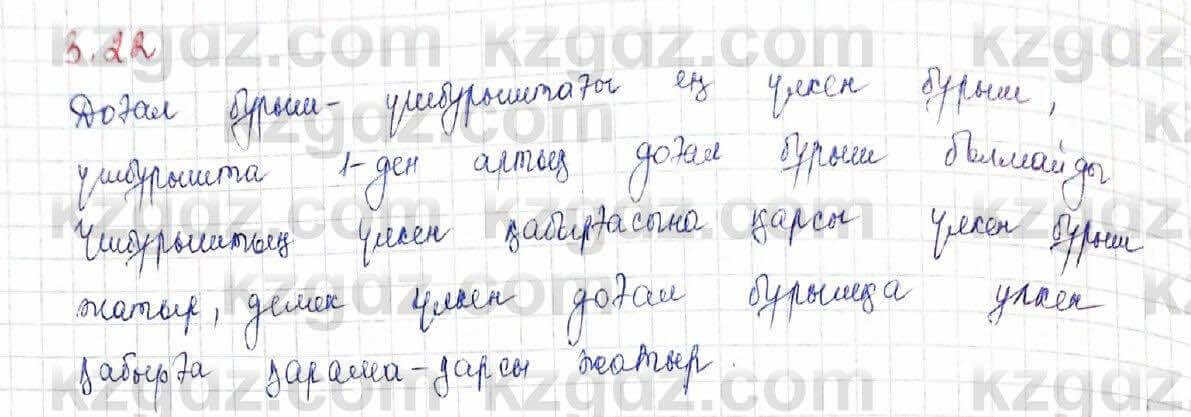 3.22
Доғал бұрыш- үшбұрыштағы ең үлкен бұрыш,
үшбұрышта 1-ден артық доғал бұрыш болмайды
Үшбұрыштың үлкен қабырғасына қарсы үлкен бұрыш
жатыр, демек үлкен доғал бұрышқа үлкен
қабырға қарама-қарсы жатыр.
kzgdz.com